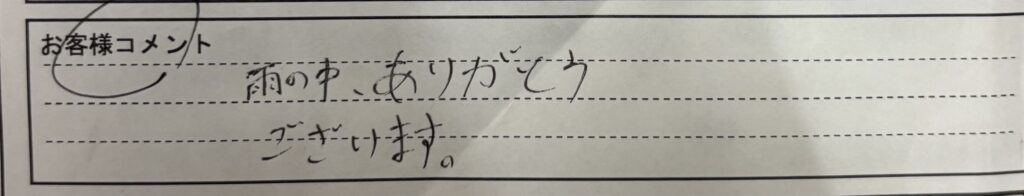 お客様コメント
雨の中、ありがとう
ございます。